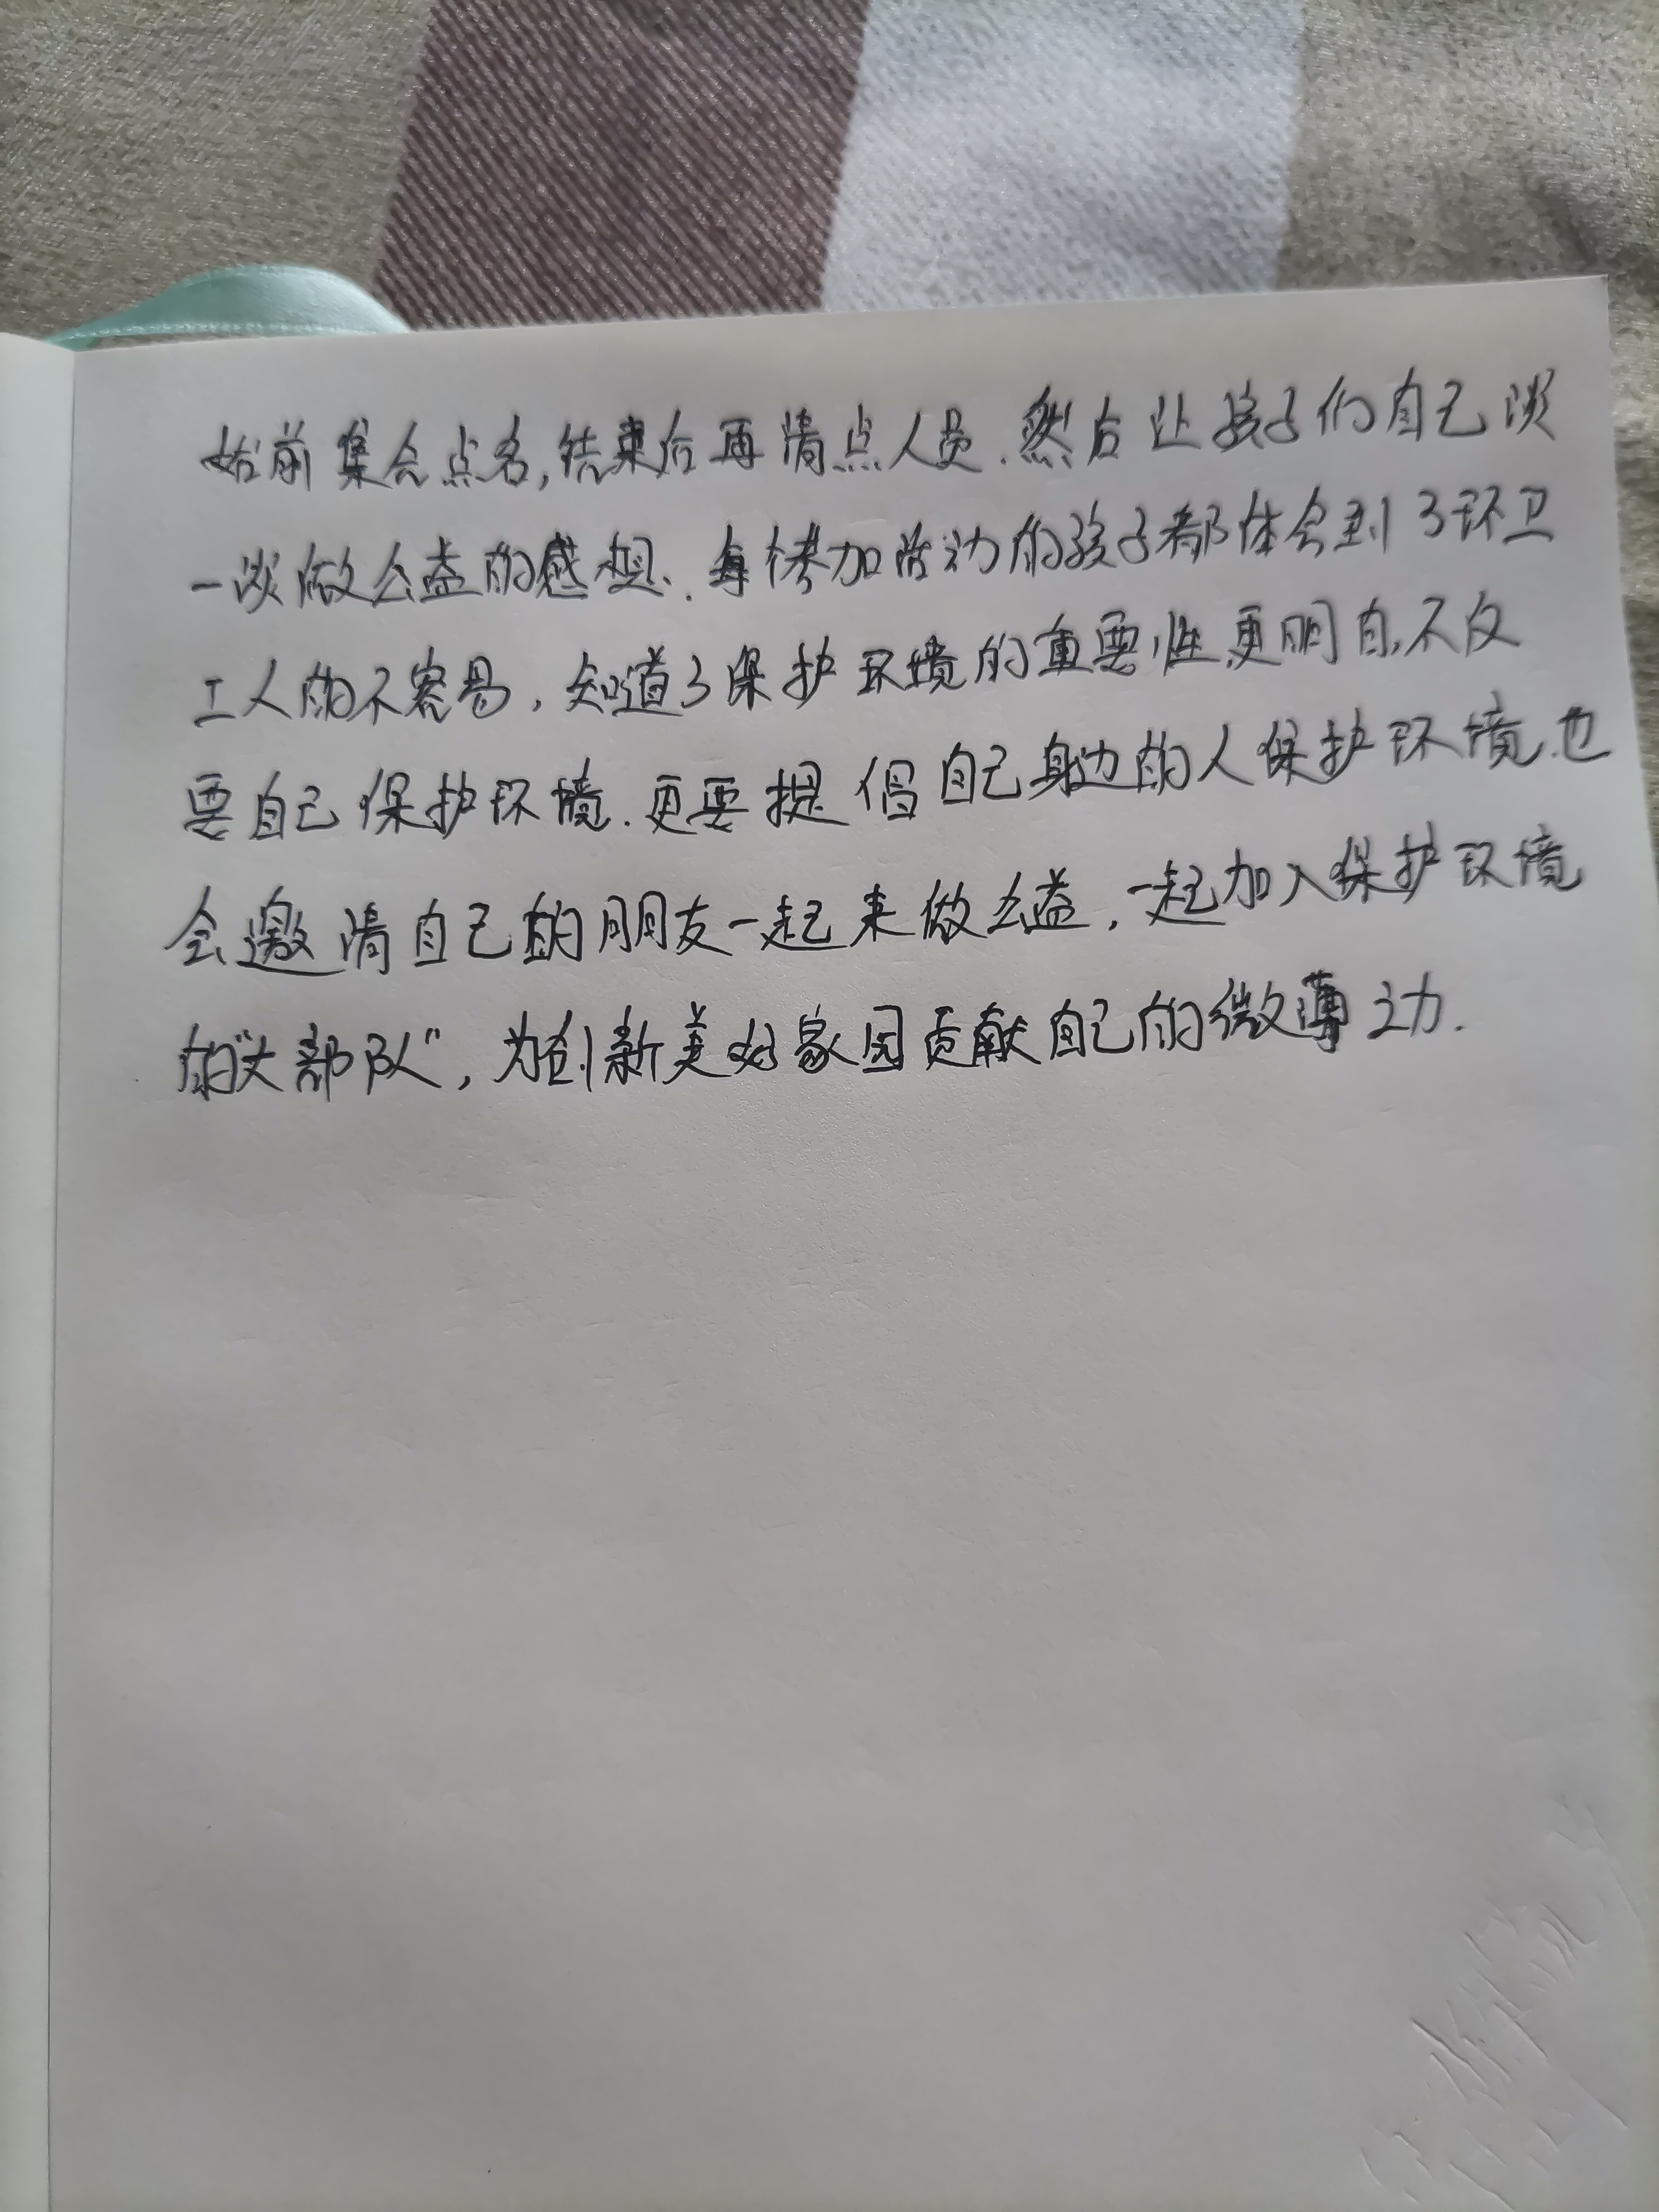 始前集合点名,结束后再清点人员.然后让孩子们自己谈
一谈做公益的感想.每个参加活动的孩子都体会到了环卫
工人的不容易,知道了保护环境的重要性,更明白,不仅
要自己保护环境.更要提倡自己身边的人保护环境.也
会邀请自己的朋友一起来做公益,一起加入保护环境
的"大部队",为创新美好家园贡献自己的微薄之力.